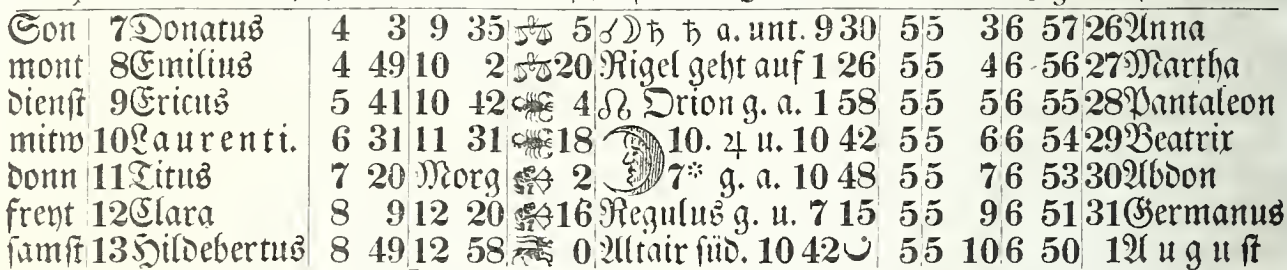 Son 7 Donatus 4 3 9 35 ♎ 5 ☌ ☽ ♄ ♄ a. unt. 9 30 5 5 3 6 57 26 Anna
mont 8 Emilius 4 49 10 2 ♎ 20 Rigel geht auf 1 26 5 5 4 6 56 27 Martha
dienst 9 Ericus 5 41 10 42 ♏ 4 ☊ Orion g. a. 1 58 5 5 5 6 55 28 Pantaleon
mitw 10 Laurenti. 6 31 11 31 ♏ 18 10. ♃ u. 10 42 5 5 6 6 54 29 Beatrix
donn 11 Titus 7 20 Morg ♐ 2 7* g. a. 10 48 5 5 7 6 53 30 Abdon
freyt 12 Clara 8 9 12 20 ♐ 16 Regulus g. u. 7 15 5 5 9 6 51 31 Germanus
samst 13 Hildebertus 8 49 12 58 ♑ 0 Altair süd. 10 42 5 5 10 6 50 1 August